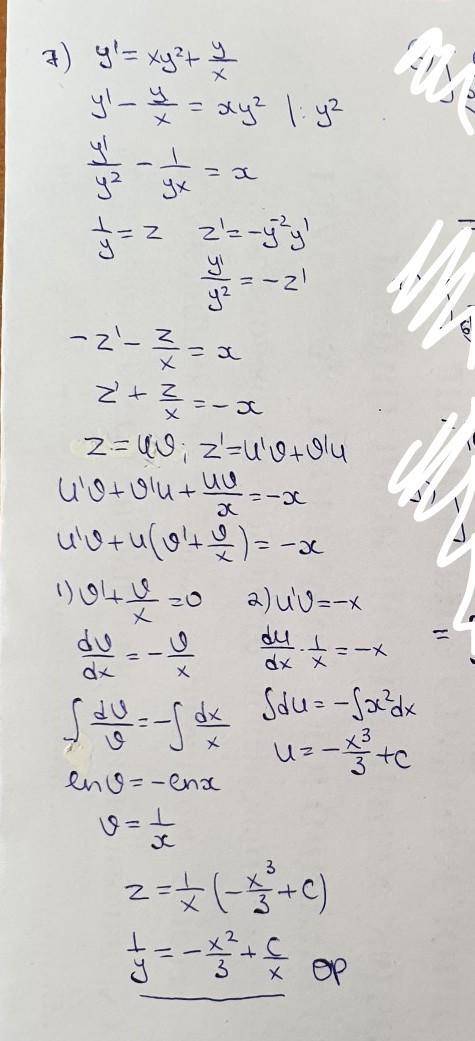 7) y' = xy² + y/x
y' - y/x = xy² |: y²
y'/y² - 1/yx = x
1/y = z z' = -y⁻²y'
y'/y² = -z'
-z' - z/x = x
z' + z/x = -x
z = uv; z' = u'v + v'u
u'v + v'u + uv/x = -x
u'v + u(v' + v/x) = -x
1) v' + v/x = 0 2) u'v = -x
dv/dx = -v/x du/dx · 1/x = -x
∫dv/v = -∫dx/x ∫du = -∫x²dx
u = -x³/3 + C
lnv = -lnx
v = 1/x
z = 1/x (-x³/3 + C)
1/y = -x²/3 + C/x ОР